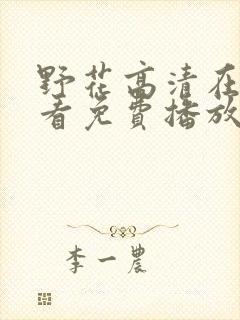 野花高清在
看免费播放
李一農